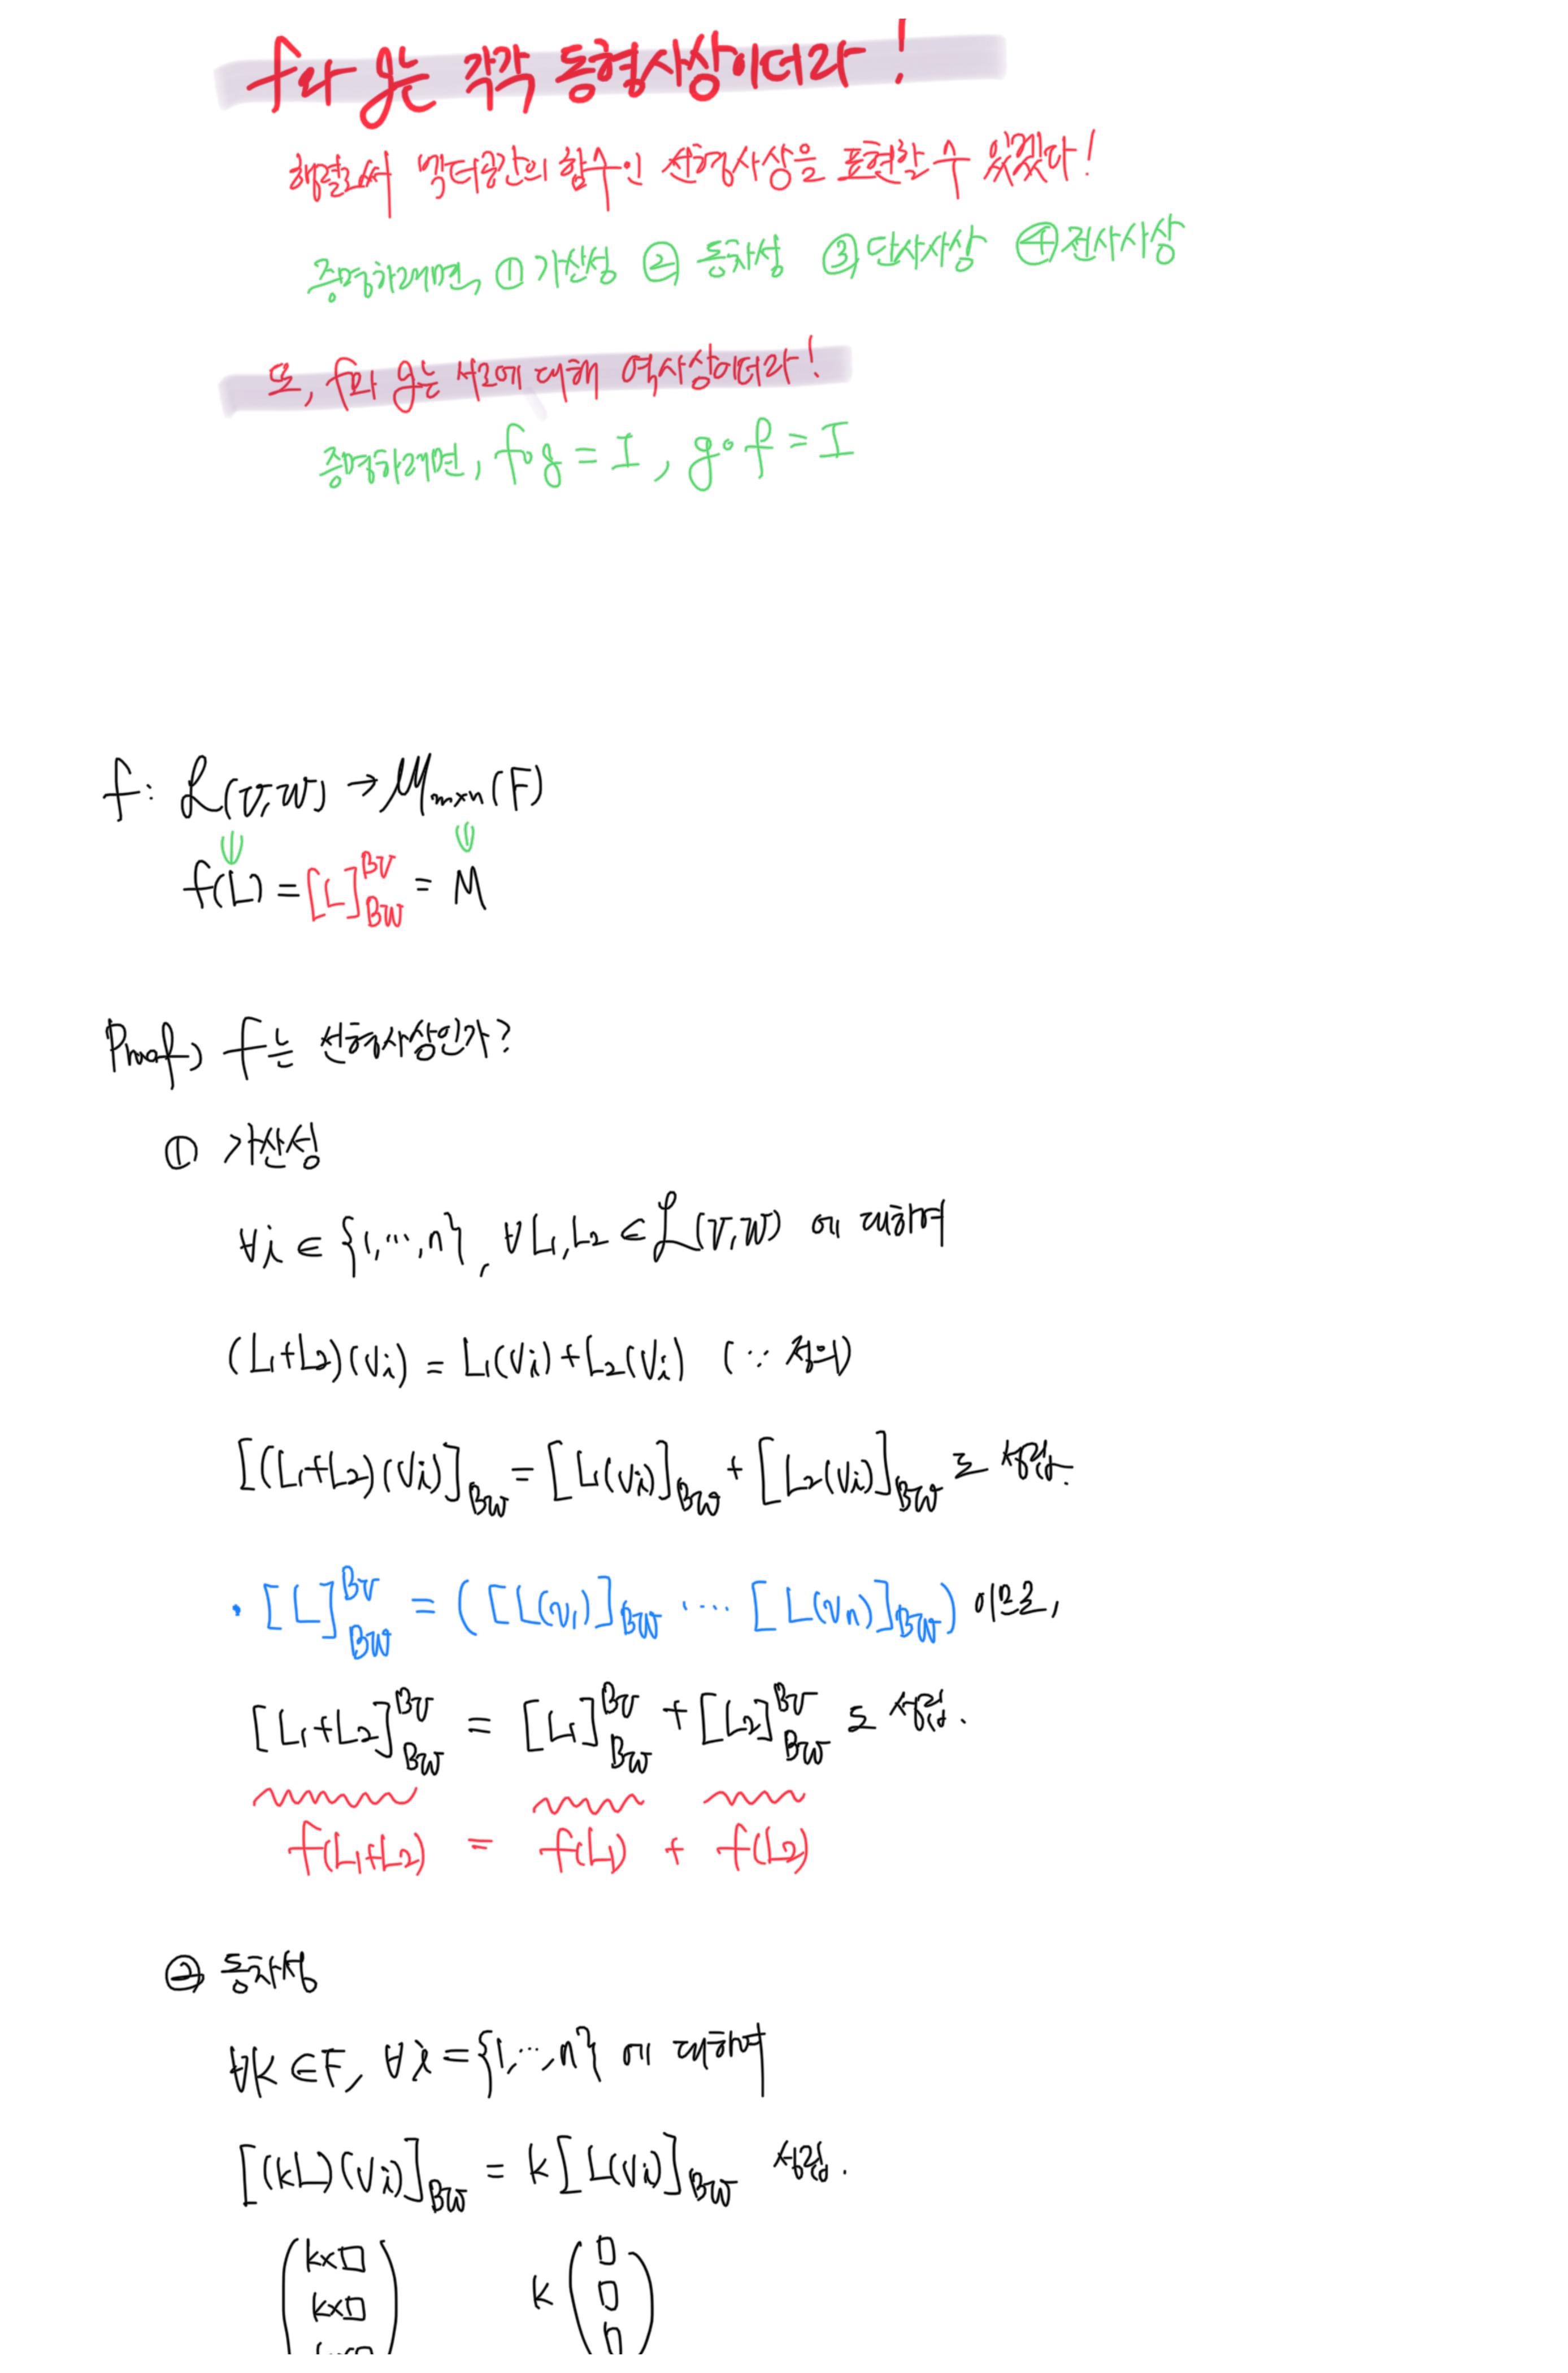 f와 g는 각각 동형사상이더라!
행렬로써 벡터공간의 함수인 선형사상을 표현할 수 있겠다!
증명하려면, ① 가산성 ② 동차성 ③ 단사사상 ④ 전사사상
또, f와 g는 서로에 대해 역사상이더라!
증명하려면, f∘g = I, g∘f = I
f: ℒ(V,W) → ℳₘₓₙ(F)
f(L) = [L]^{BV}_{BW} = M
Proof) f는 선형사상인가?
① 가산성
∀i ∈ {1,⋯,n}, ∀L₁,L₂ ∈ ℒ(V,W) 에 대하여
(L₁+L₂)(vi) = L₁(vi)+L₂(vi) (∵ 정의)
[(L₁+L₂)(vi)]_{BW} = [L₁(vi)]_{BW} + [L₂(vi)]_{BW} 도 성립.
· [L]^{BV}_{BW} = ([L(v₁)]_{BW} ⋯⋅ [L(vn)]_{BW}) 이므로,
[L₁+L₂]^{BV}_{BW} = [L₁]^{BV}_{BW} + [L₂]^{BV}_{BW} 도 성립.
f(L₁+L₂) = f(L₁) + f(L₂)
② 동차성
∀k ∈ F, ∀i = {1,⋯,n} 에 대하여
[(kL)(vi)]_{BW} = k[L(vi)]_{BW} 성립.
(k×□ k ( □
k×□ □